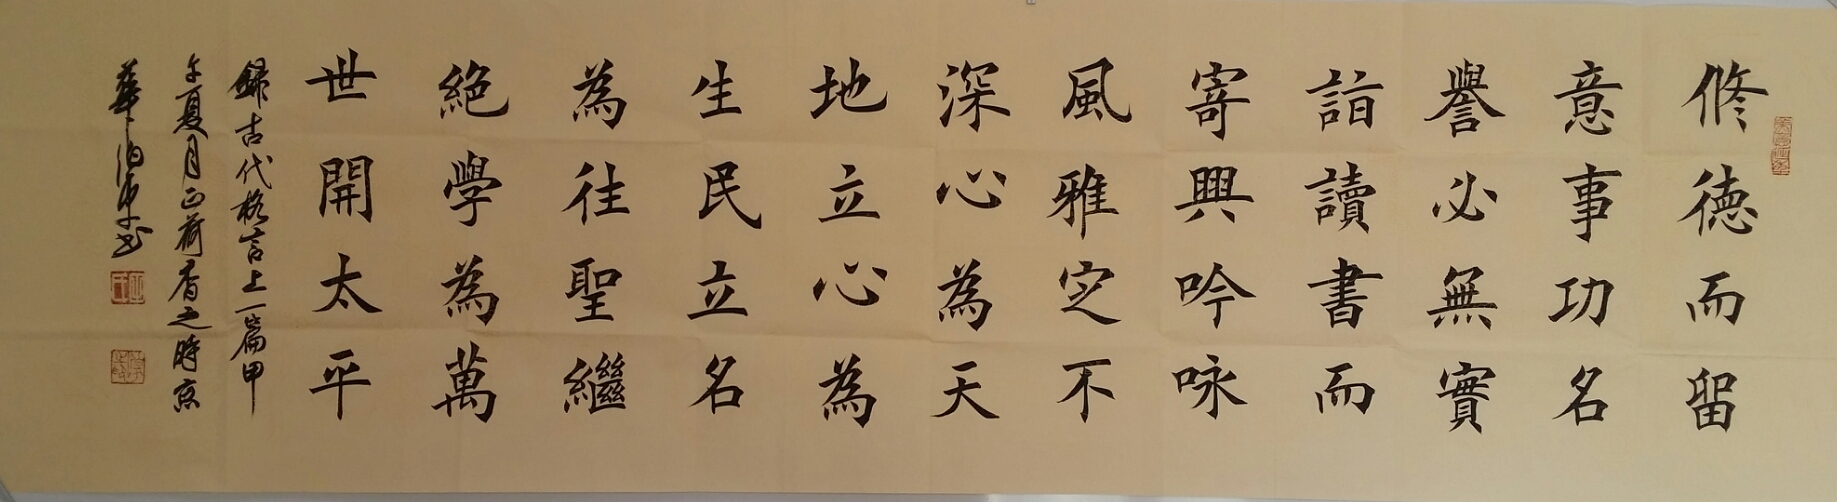 修德而留
意事功名
譽必無實
詣讀書而
寄興吟咏
風雅定不
深心為天
地立心為
生民立名
為往聖繼
絕學為萬
世開太平
錄古代格言上一篇甲
午夏月正荷香之時京
華